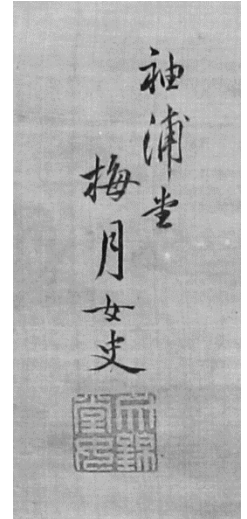 袖浦堂
梅月女史